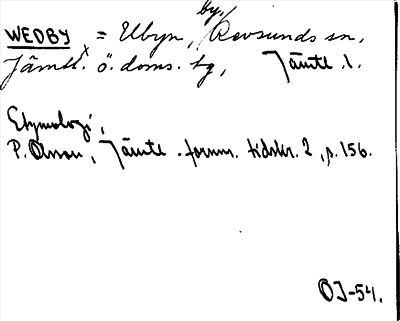 WEDBY x = Ubyn, by, Revsunds sn,
Jämtl. ö. doms. tg, Jämtl. l.
Etymologi,
P. Olsson, Jämtl. fornm. tidskr. 2, s. 156.
OJ-54.